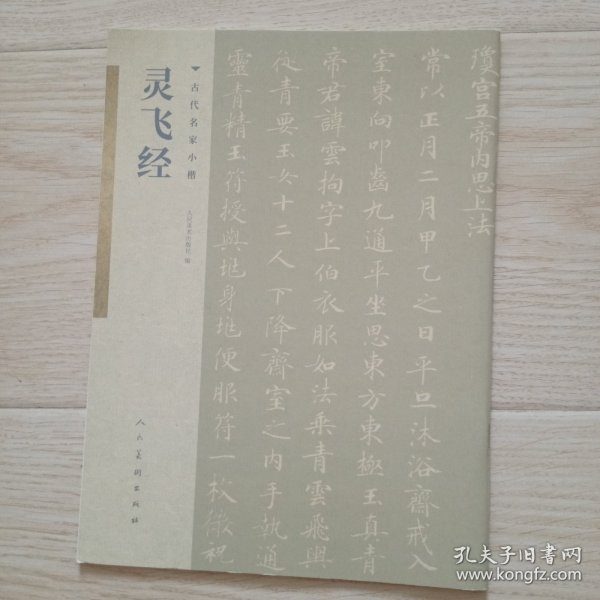 灵飞经
古代名家小楷
人民美术出版社 编
人民美術出版社
瓊宫五帝内思上法
常以正月二月甲乙之日平旦沐浴齋戒入
室東向叩齒九通平坐思東方東極玉真青
帝君諱雲拘字上伯衣服如法乘青雲飛輿
從青要玉女十二人下降齋室之内手執通
靈青精玉符授與地身地便服符一枚微祝
孔夫子旧书网
www.kongfz.com